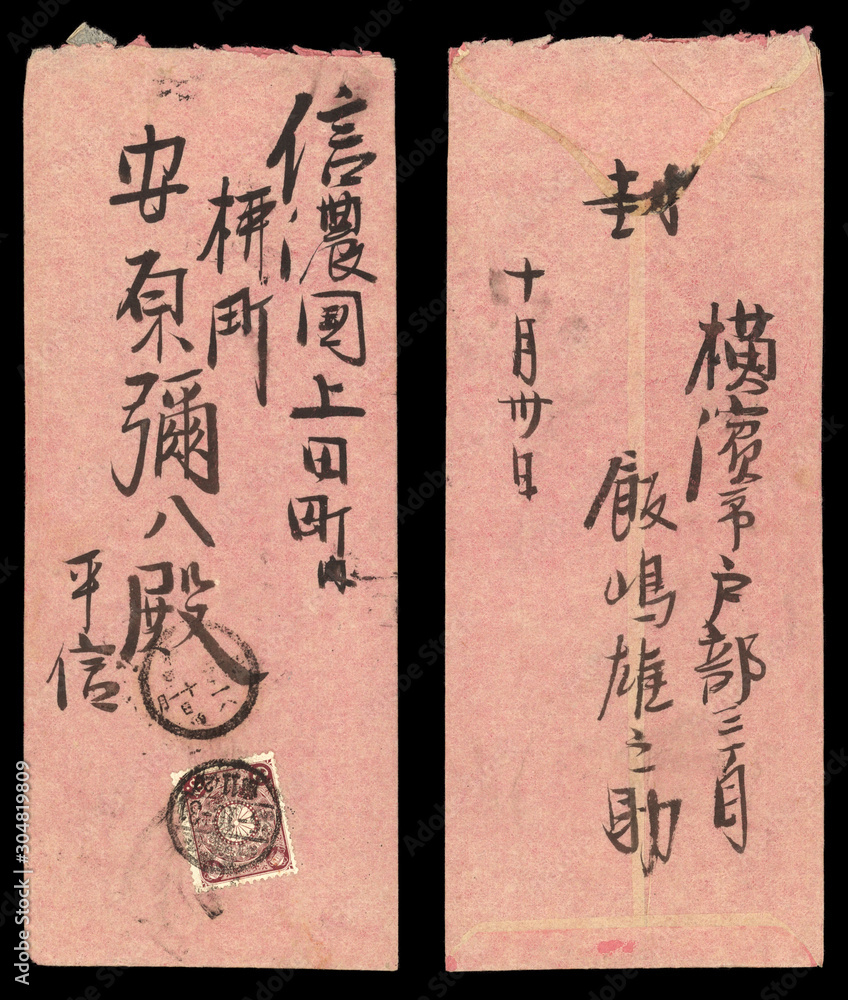 信濃國上田町内
柄町
安原彌八殿
平信
封
横濱市戸部三丁目
飯嶋雄之助
十月卅日
Adobe Stock
304819809